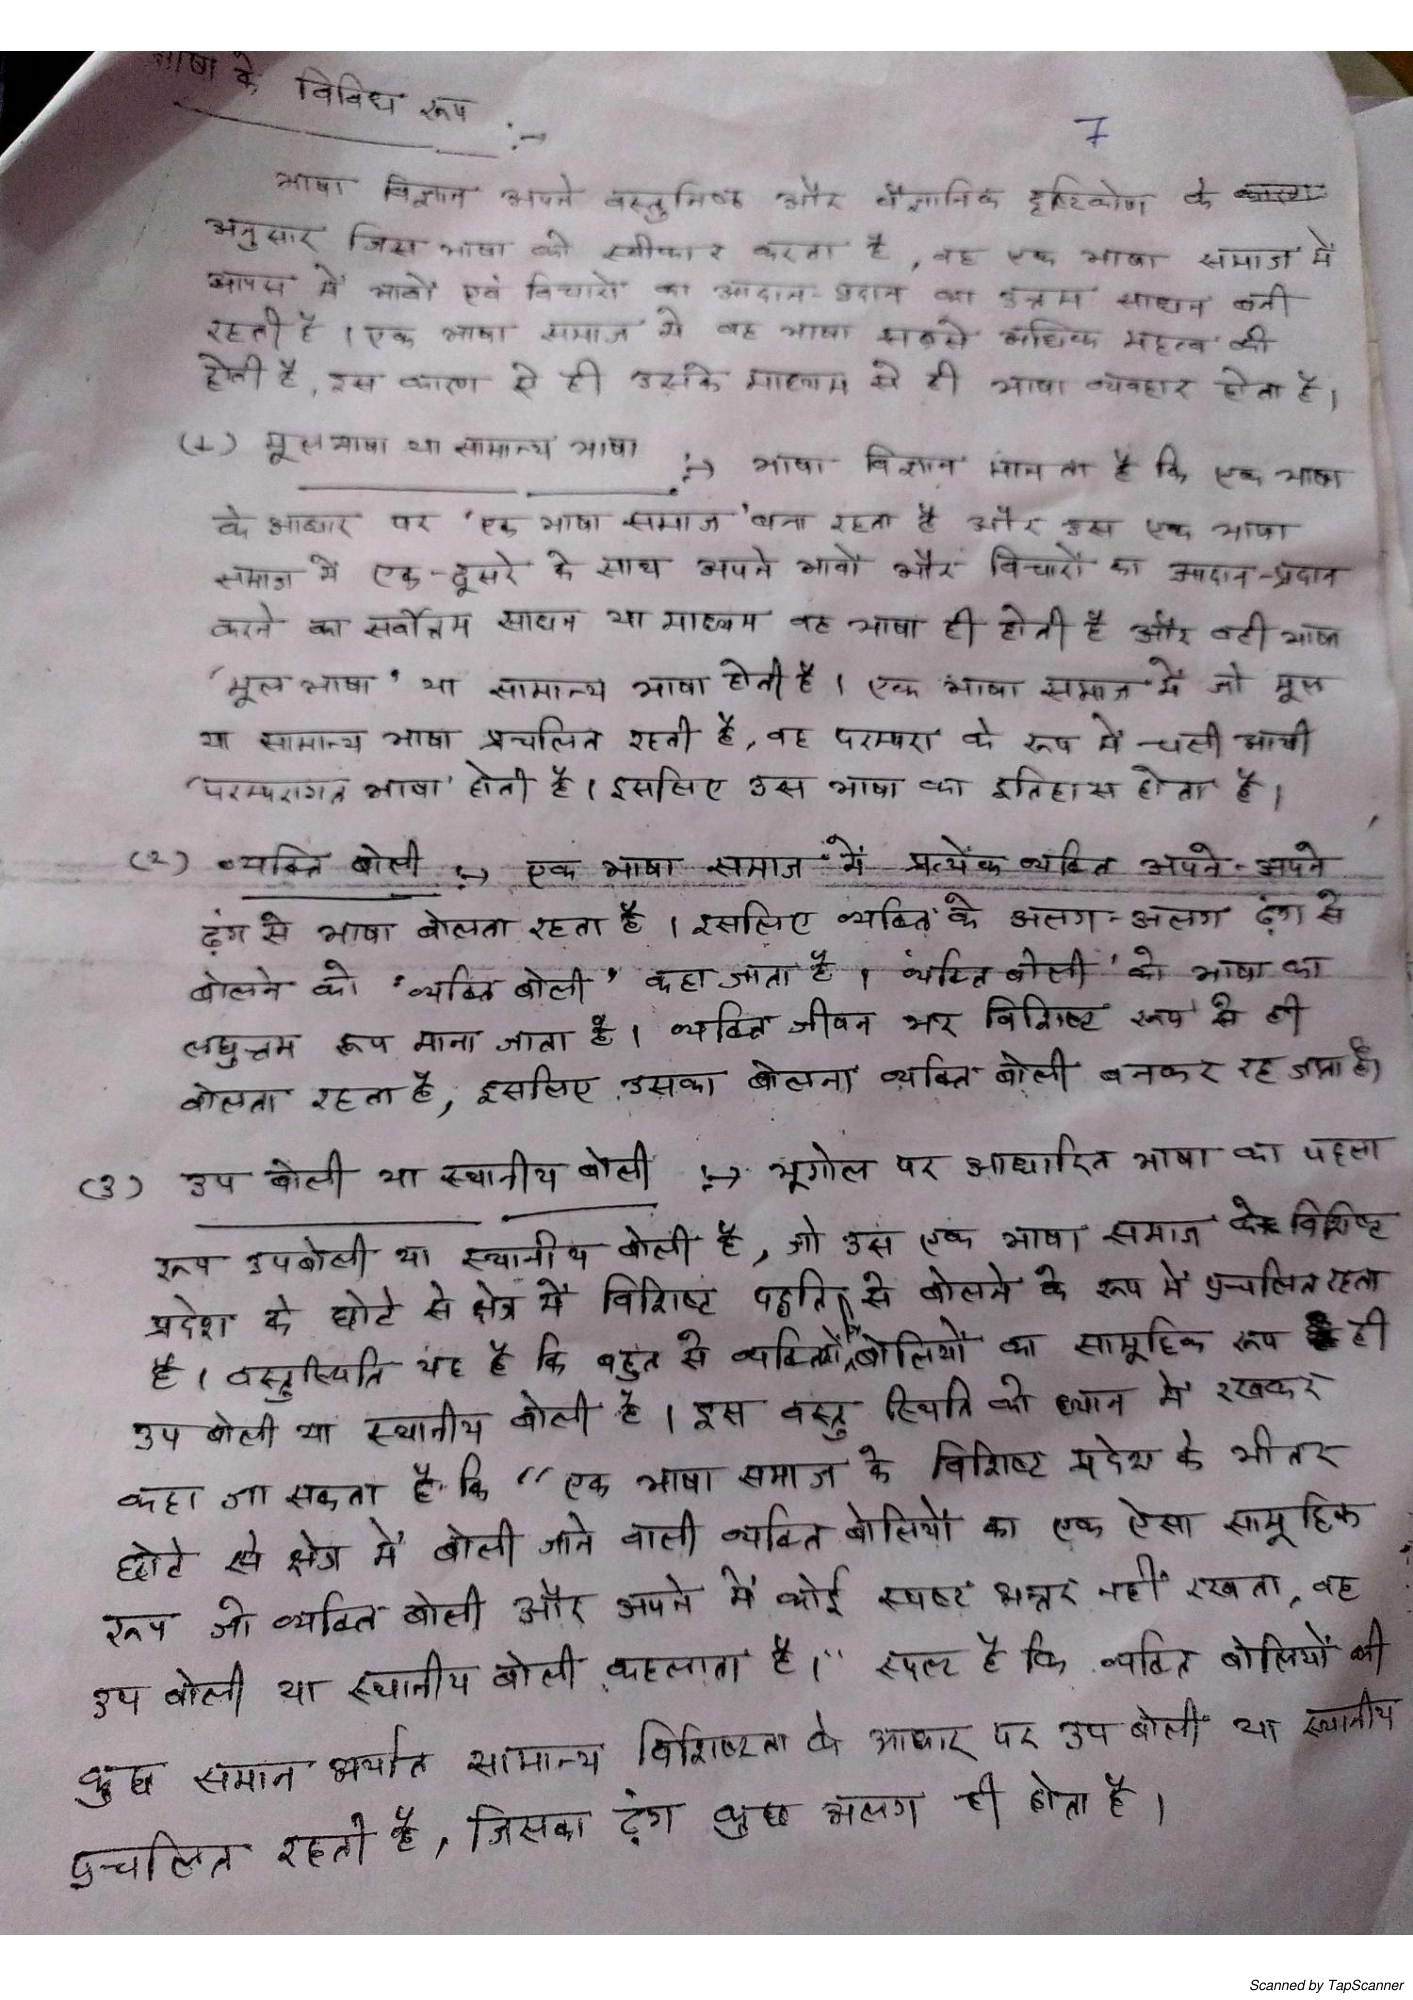 भाषा के विविध रूप :→
7
भाषा विज्ञान अपने वस्तुनिष्ठ और वैज्ञानिक दृष्टिकोण के
अनुसार जिस भाषा को स्वीकार करता है, वह एक भाषा समाज में
आपस में भावों एवं विचारों का आदान-प्रदान का उत्तम साधन बनी
रहती है । एक भाषा समाज में वह भाषा सबसे अधिक महत्व की
होती है, इस कारण से ही उसके माध्यम से ही भाषा व्यवहार होता है।
(1) मूलभाषा या सामान्य भाषा :→ भाषा विज्ञान मानता है कि एक भाषा
के आधार पर 'एक भाषा समाज' बना रहता है और उस एक भाषा
समाज में एक-दूसरे के साथ अपने भावों और विचारों का आदान-प्रदान
करने का सर्वोत्तम साधन या माध्यम वह भाषा ही होती है और वही भाषा
'मूल भाषा' या सामान्य भाषा होती है । एक भाषा समाज में जो मूल
या सामान्य भाषा प्रचलित रहती है, वह परम्परा के रूप में चली आयी
'परम्परागत भाषा' होती है । इसलिए उस भाषा का इतिहास होता है।
(2) व्यक्ति बोली :→ एक भाषा समाज में प्रत्येक व्यक्ति अपने-अपने
ढ़ंग से भाषा बोलता रहता है । इसलिए व्यक्ति के अलग-अलग ढ़ंग से
बोलने को 'व्यक्ति बोली' कहा जाता है । व्यक्ति बोली' को भाषा का
लघुत्तम रूप माना जाता है । व्यक्ति जीवन भर विशिष्ट रूप से ही
बोलता रहता है, इसलिए उसका बोलना व्यक्ति बोली बनकर रह जाता है।
(3) उप बोली या स्थानीय बोली :→ भूगोल पर आधारित भाषा का पहला
रूप उपबोली या स्थानीय बोली है, जो उस एक भाषा समाज के विशिष्ट
प्रदेश के छोटे से क्षेत्र में विशिष्ट पद्धति से बोलने के रूप में प्रचलित रहता
है । वस्तुस्थिति यह है कि बहुत से व्यक्तियों बोलियों का सामूहिक रूप ही
उप बोली या स्थानीय बोली है । इस वस्तु स्थिति को ध्यान में रखकर
कहा जा सकता है कि "एक भाषा समाज के विशिष्ट प्रदेश के भीतर
छोटे से क्षेत्र में बोली जाने वाली व्यक्ति बोलियों का एक ऐसा सामूहिक
रूप जो व्यक्ति बोली और अपने में कोई स्पष्ट अन्तर नहीं रखता, वह
उप बोली या स्थानीय बोली कहलाता है।" स्पष्ट है कि व्यक्ति बोलियों की
कुछ समान अर्थात सामान्य विशिष्टता के आधार पर उप बोली या स्थानीय
प्रचलित रहती है, जिसका ढ़ंग कुछ अलग ही होता है ।
Scanned by TapScanner